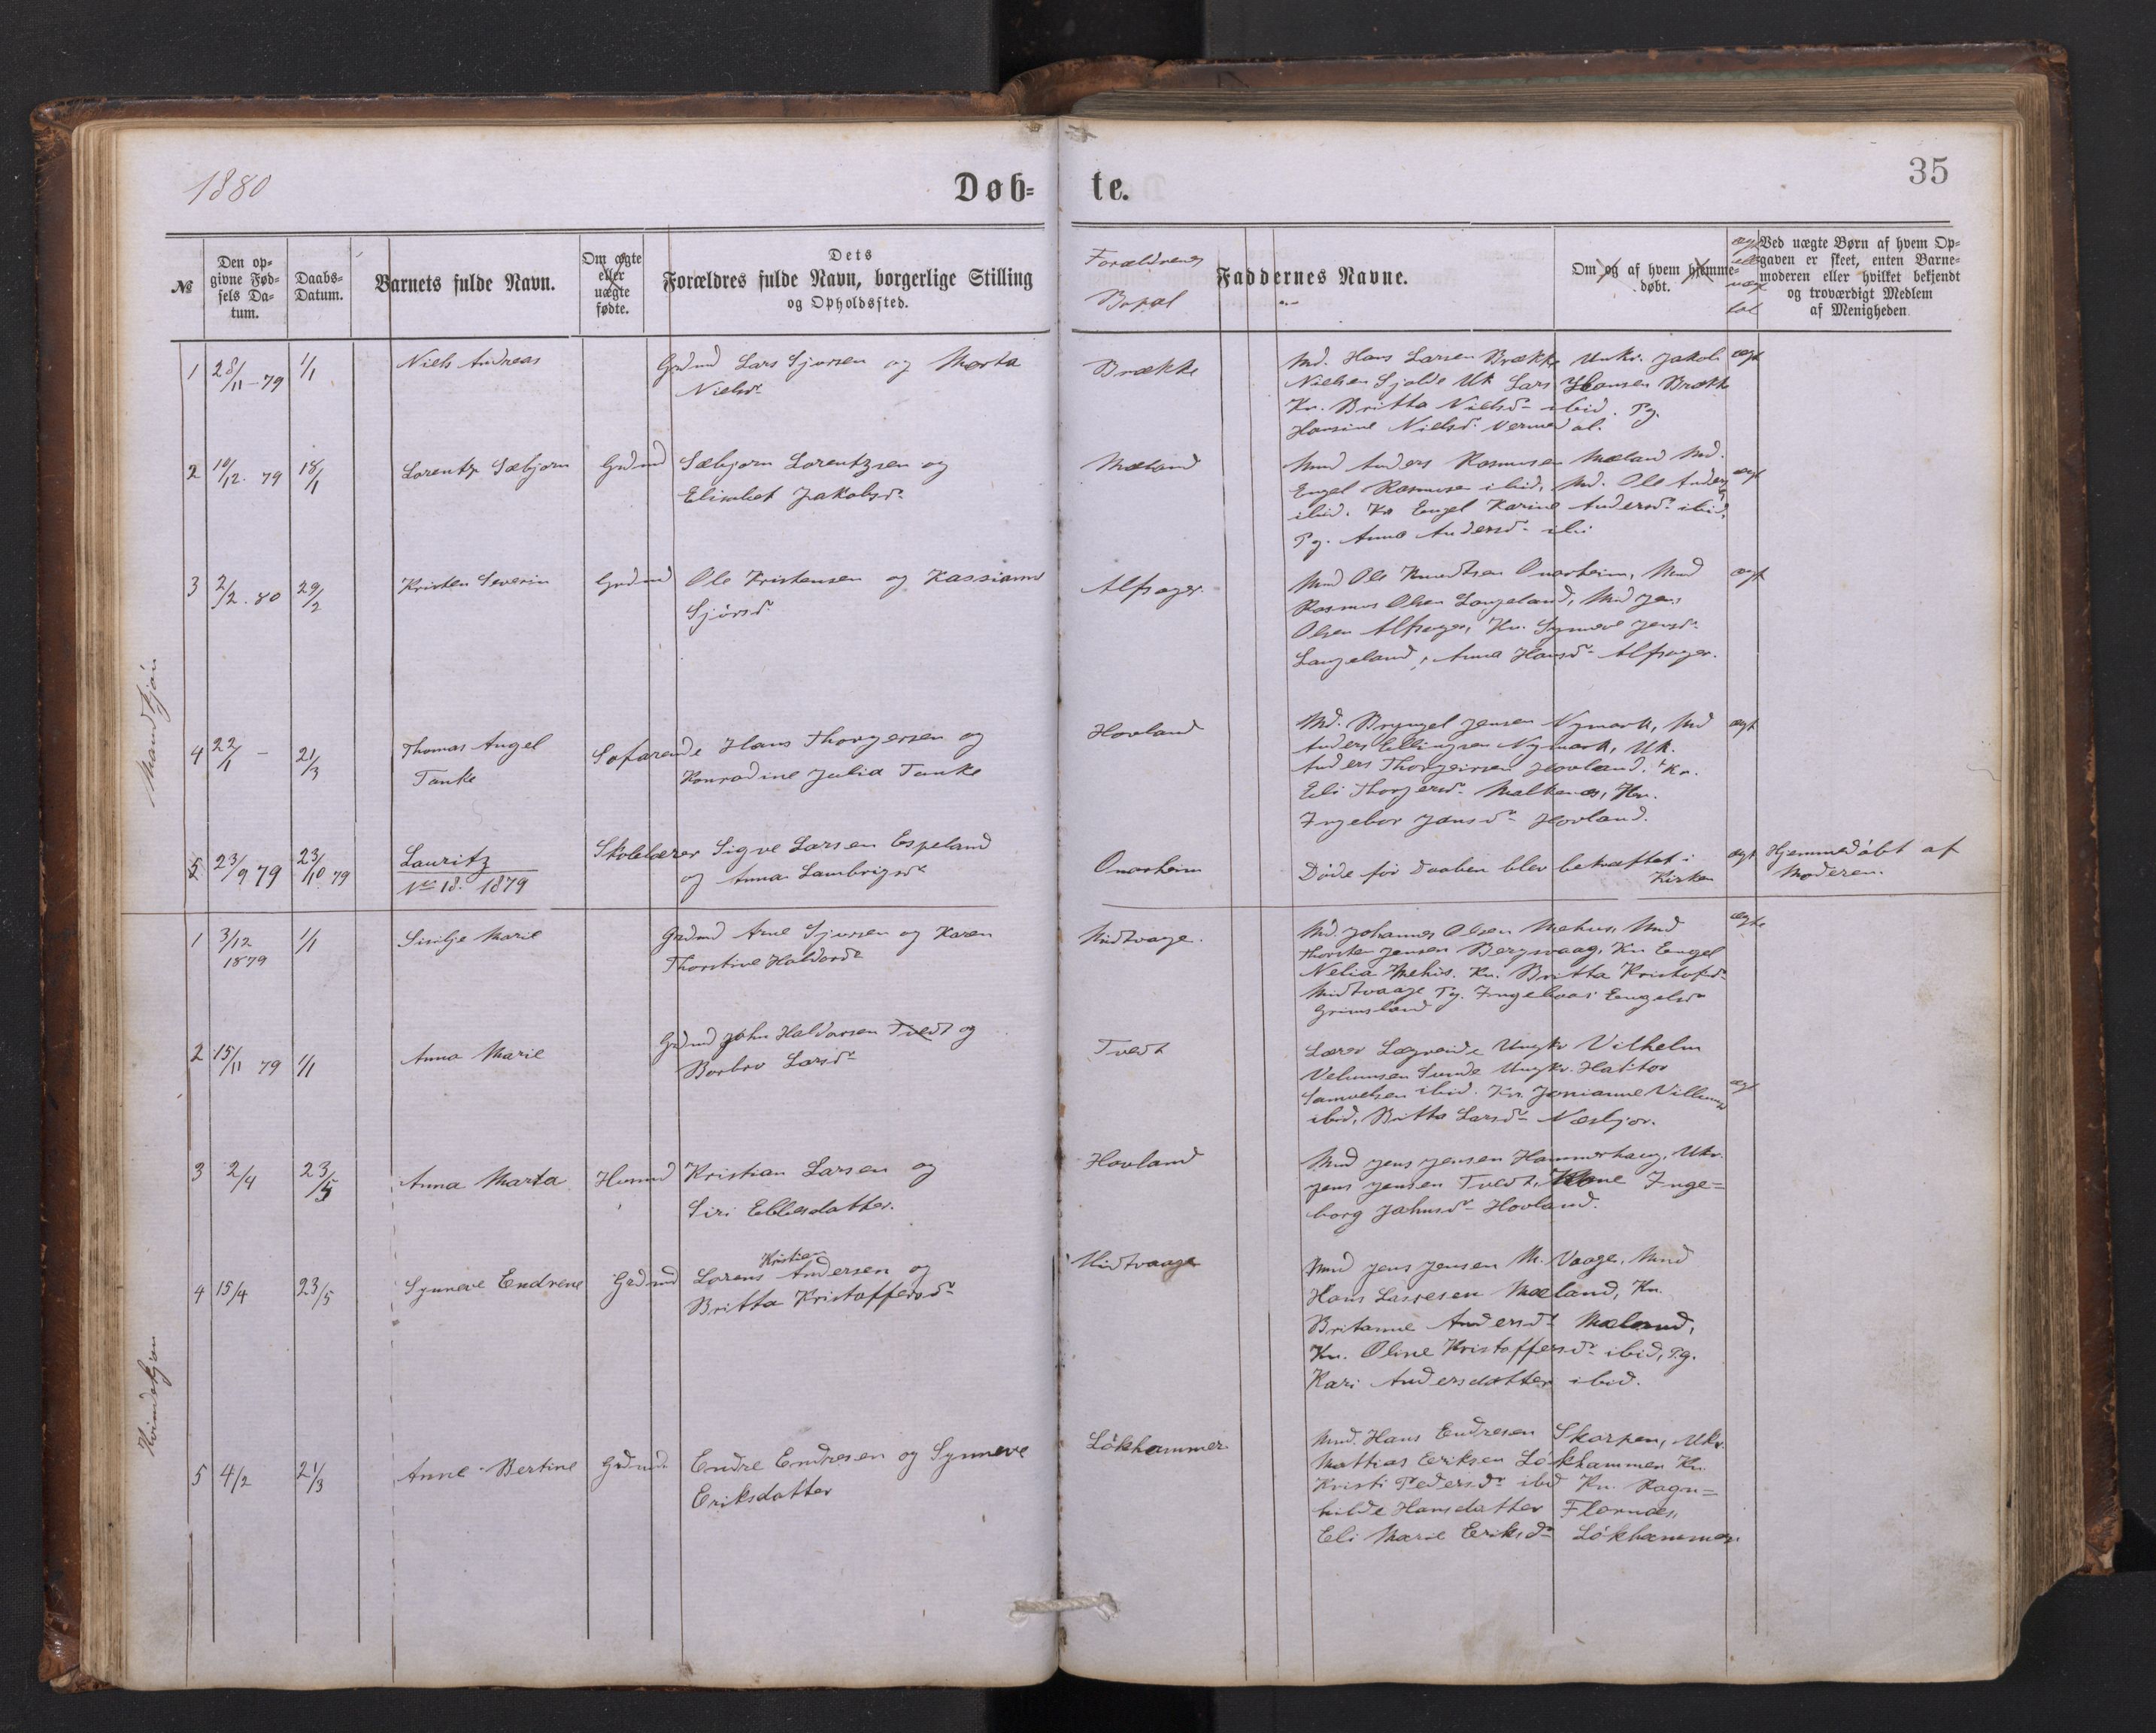 1880
Døb=
te.
35
№
Den op=
givne Fød=
sels Da=
tum.
Daabs=
Datum.
Barnets fulde Navn.
Om ægte
eller
uægte
fødte.
Dets
Forældres fulde Navn, borgerlige Stilling
og Opholdssted.
Forældrenes
Bopæl
Faddernes Navne.
Om og af hvem hjemme=
døbt.
Ved uægte Børn af hvem Op=
gaven er skeet, enten Barne=
moderen eller hvilket bekjendt
og troværdigt Medlem
af Menigheden
Mandkjön
1 28/11-79 1/1 Niels Andreas Grdmd Lars Sjursen og Marta
Nielsd.
Brække
Md. Hans Larsen Brække Unkr. Jakob
Nielsen Sjolde Uk Lars Hansen Brække
Kn. Britta Nielsd. ibid. Pg.
Hansine Nielsd.
ægt
2 10/12. 79 18/1 Lorentz Sæbjorn Grdmd Sæbjorn Lorentzsen og
Elisabet Jakobsd.
Mæland
Mnd Anders Rasmusen Mæland Md.
Engel Rasmusen ibid, Md. Ole Anders
ibid. Kn Engel Karine Andersd. ibid,
Pg. Anna Andersd. ibi
ægt
3 2/2. 80 29/2 Kristen Severin Grdmd Ole Kristensen og Kassianne
Sjursd
Alfsager
Mnd Ole Knudtsen Onarheim, Mnd
Rasmus Olsen Langeland, Mnd Jens
Olsen Alfsager, Kn. Synneve Jensd.
Langeland, Anna Hansd. Alfsager.
ægt
4 22/1 - 21/3 Thomas Angel
Tanke
Søfarende Hans Thorgersen og
Konradine Julia Tanke
Hovland
Md. Bryngel Jensen Nymark, Md
Anders Ellingsen Nymark, Uk.
Anders Thorgeirsen Hovland. Kn.
Eli Thorgersd. Malkenes, Kn.
Ingebor Jansd. Hovland.
ægt
5 23/9 79 23/10 79 Lauritz
No 18. 1879
Skolelærer Sigve Larsen Espeland
og Anna Lambrigsd.
Onarheim
Döde för Daaben blev bekræftet i
Kirken
ægt
Hjemmedöbt af
Moderen.
Kvindekjön
1 3/12
1879
1/1 Sisilje Marie Grdmd Arne Sjursen og Karen
Thorstine Haldorsd.
Midtvaage.
Md. Johannes Olsen Mehus, Mnd
Thorsten Jensen Bergsvaag, Kn Engel
Nelia Mehus. Kn. Britta Kristofsd.
Midtvaage Pg. Ingeboar Engelsd.
Grimsland
ægte
2 15/11 79 1/1 Anna Marie Grdmd John Haldorsen Tvedt og
Borbro Larsd.
Tvedt
Lærer Lægreide Ungkr Vilhelm
Velumsen Sunde Ungkr. Halttor
Samuelsen ibid. Kn. Jonianne Villumsd
ibid, Britta Larsd. Næsbjor.
ægt
3 2/4 23/5 Anna Marta Husmd Kristian Larsen og
Siri Ebbesdatter.
Hovland
Mnd Jens Jensen Hammerhaug, Ukr.
Jens Jensen Tvedt, Kone Inge=
borg Johnsd. Hovland.
4 15/4 23/5 Synneve Endrene Grdmd Lorens Kristian Andersen og
Britta Kristoffersd.
Midtvaage
Mnd Jens Jensen M. Vaage, Mnd
Hans Lassesen Mæland, Kn.
Britanne Andersd. Mæland,
Kn. Oline Kristoffersd. ibid, Pg.
Kari Andersdatter ibid.
5 4/2 21/3 Anne Bertine Grdmd. Endre Endresen og Synneve
Eriksdatter
Lökhammer
Mnd. Hans Endresen Skorpen, Ukr.
Mattias Eriksen Lökhammer Kn.
Kristi Pedersd. ibid Kn. Ragn=
hilde Hansdatter Flornæs,
Eli Marie Eriksd. Lökhammer